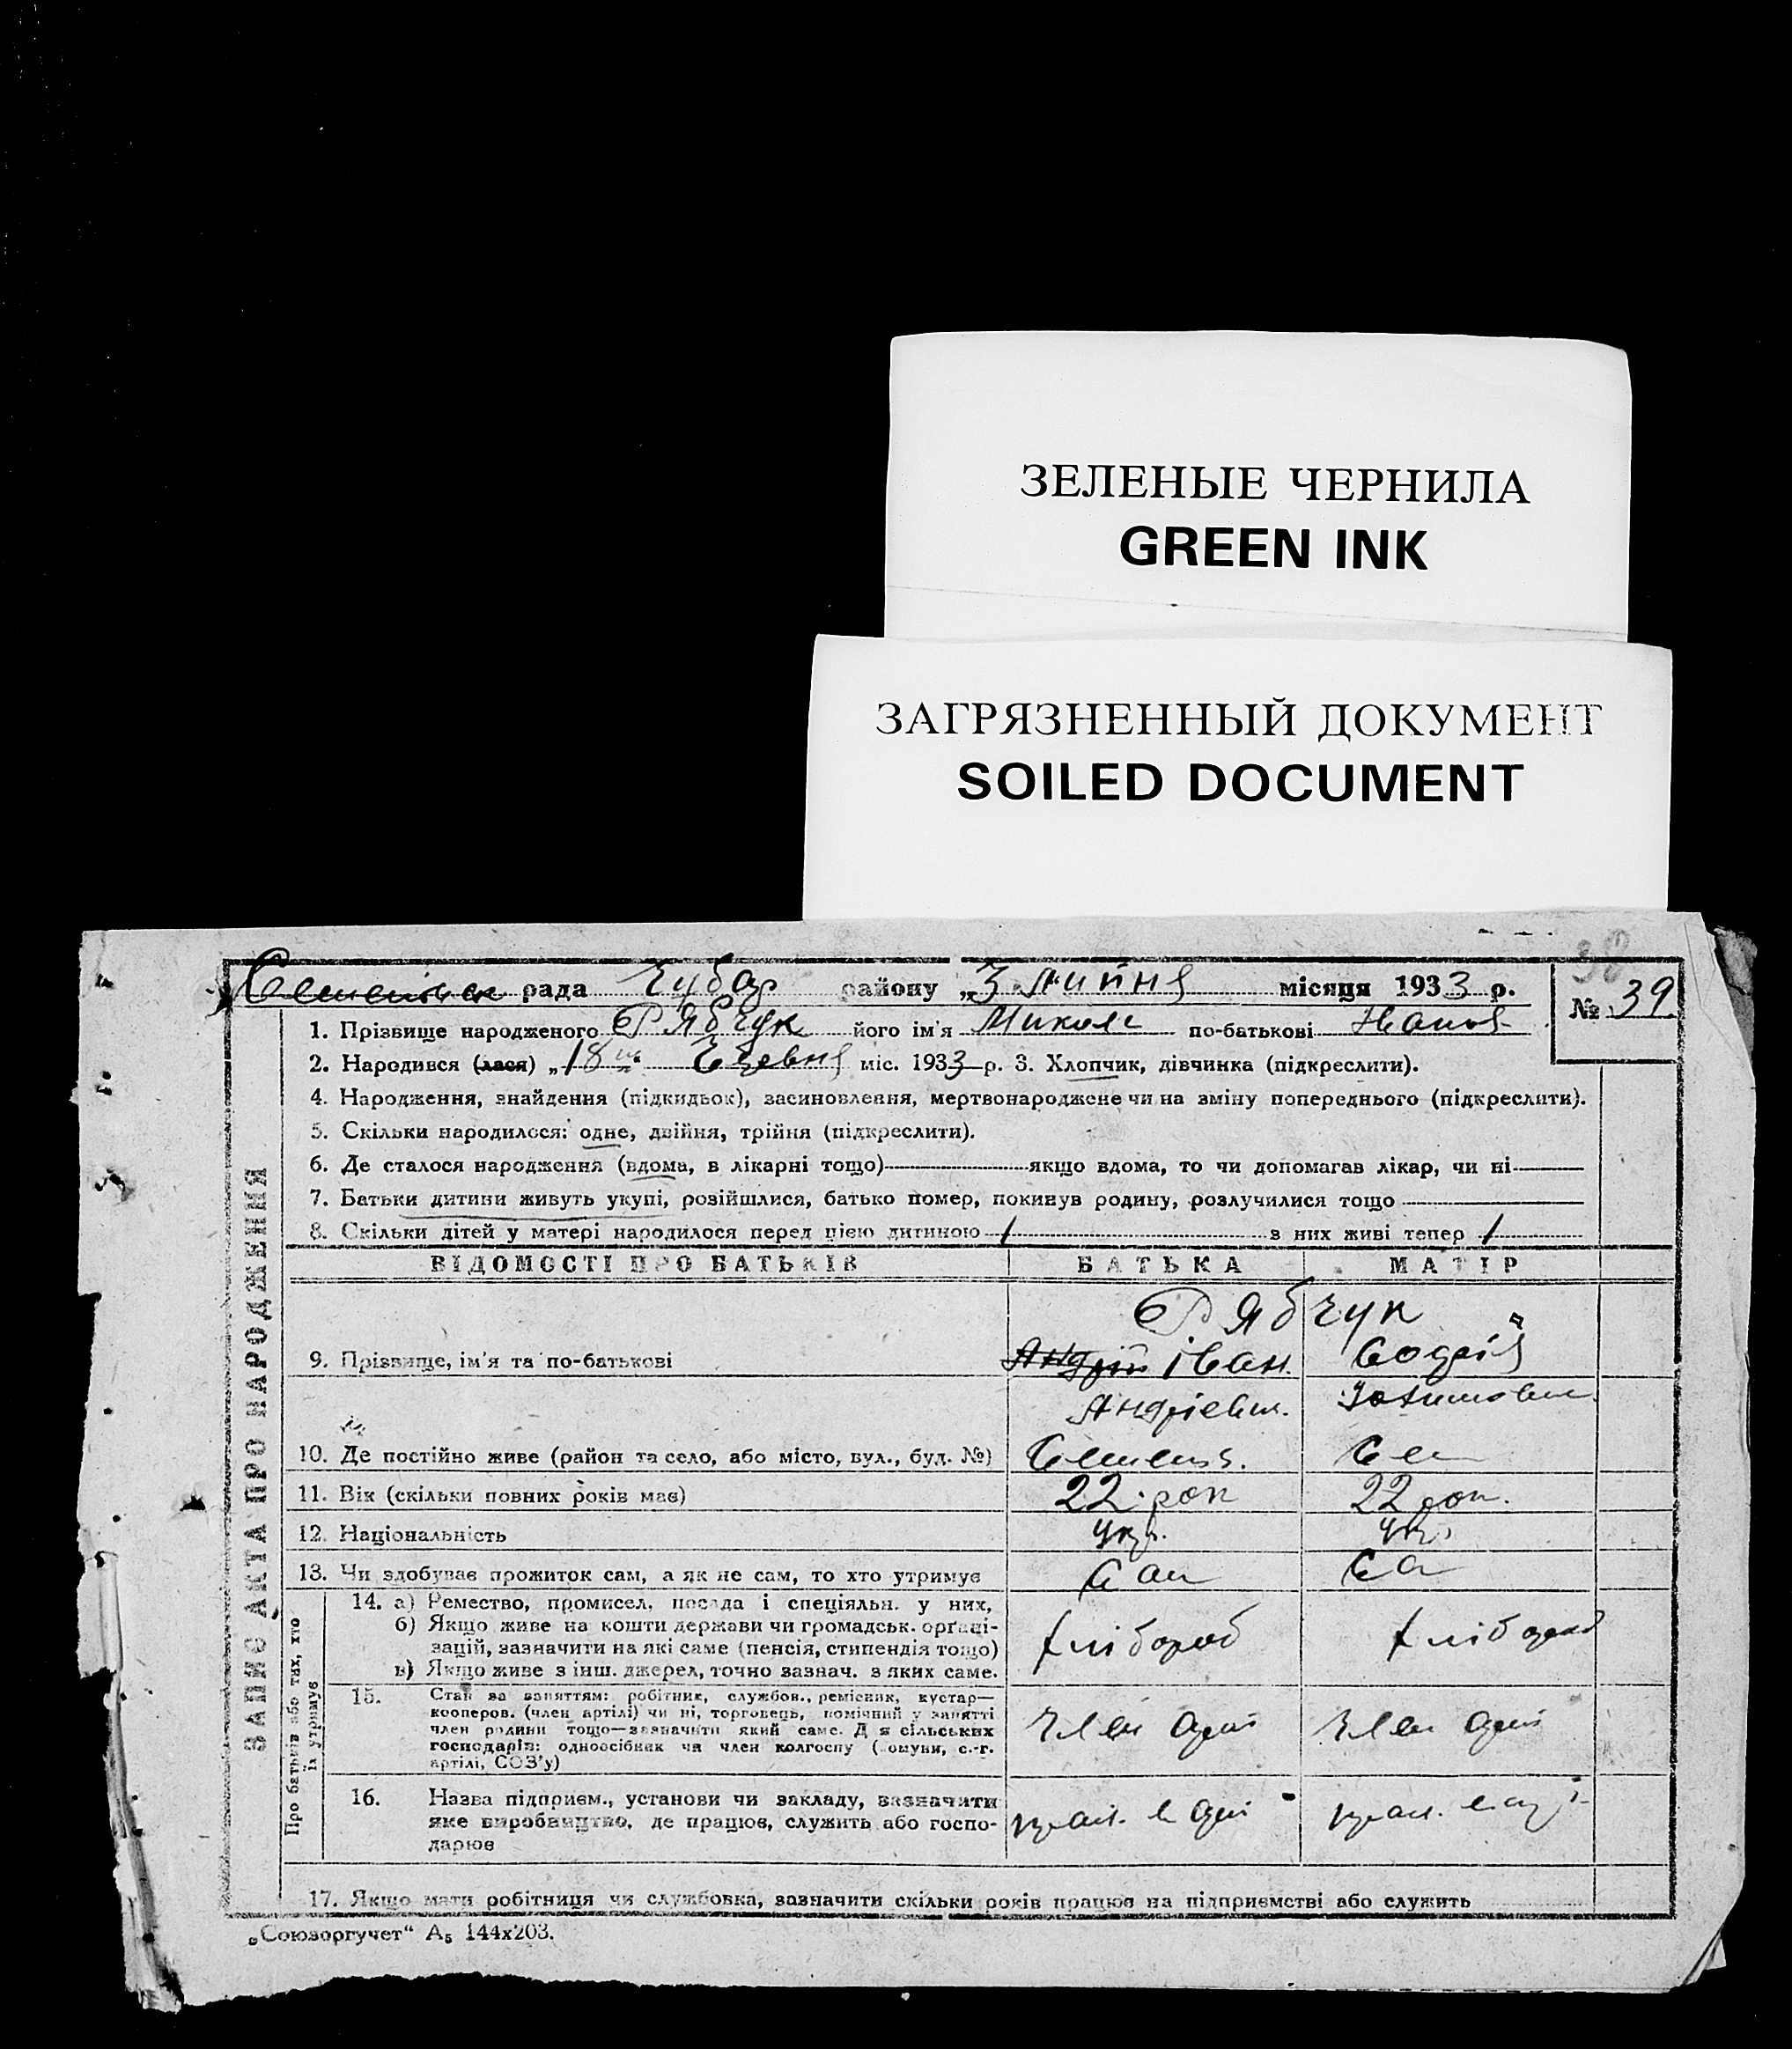 ЗЕЛЕНЫЕ ЧЕРНИЛА
GREEN INK
ЗАГРЯЗНЕННЫЙ ДОКУМЕНТ
SOILED DOCUMENT
рада Чубар району „3 липня місяця 1933 р.
№ 39
1. Прізвище народженого Рябчук його ім'я Микола по-батькові Іванов.
2. Народився (лася) „18“ Червня міс. 1933 р. 3. Хлопчик, дівчинка (підкреслити).
4. Народження, знайдення (підкидьок), засиновлення, мертвонароджене чи на зміну попереднього (підкреслити).
5. Скільки народилося: одне, двійня, трійня (підкреслити).
6. Де сталося народження (вдома, в лікарні тощо) якщо вдома, то чи допомагав лікар, чи ні
7. Батьки дитини живуть укупі, розійшлися, батько помер, покинув родину, розлучилися тощо
8. Скільки дітей у матері народилося перед цією дитиною 1 з них живі тепер 1
ЗАПИС АКТА ПРО НАРОДЖЕННЯ
ВІДОМОСТІ ПРО БАТЬКІВ БАТЬКА МАТІР
Рябчук
9. Прізвище, ім'я та по-батькові Андрій Іван. Софія
Андрієвич.
10. Де постійно живе (район та село, або місто, вул., буд. №)
11. Вік (скільки повних років має) 22 рок 22 рок.
12. Національність укр. укр.
13. Чи здобуває прожиток сам, а як не сам, то хто утримує Сам Са
Про батьків або тих, хто їх утримує
14. а) Ремество, промисел, посада і спеціяльн. у них,
б) Якщо живе на кошти держави чи громадськ. орґані-
зацій, зазначити на які саме (пенсія, стипендія тощо) хлібороб хлібороб
в) Якщо живе з інш. джерел, точно зазнач. з яких саме.
15. Стан за заняттям: робітник, службов., ремісник, кустар—
кооперов. (член артілі) чи ні, торговець, помічний у занятті
член родини тощо—зазначити який саме. Для сільських Член арті Член арті
господарів: одноосібник чи член колгоспу (комуни, с.-г.
артілі, СОЗ'у)
16. Назва підприєм., установи чи закладу, зазначити
яке виробництво, де працює, служить або госпо-
дарює
17. Якщо мати робітниця чи службовка, зазначити скільки років працює на підприємстві або служить
„Союзоргучет“ А₅ 144х203.